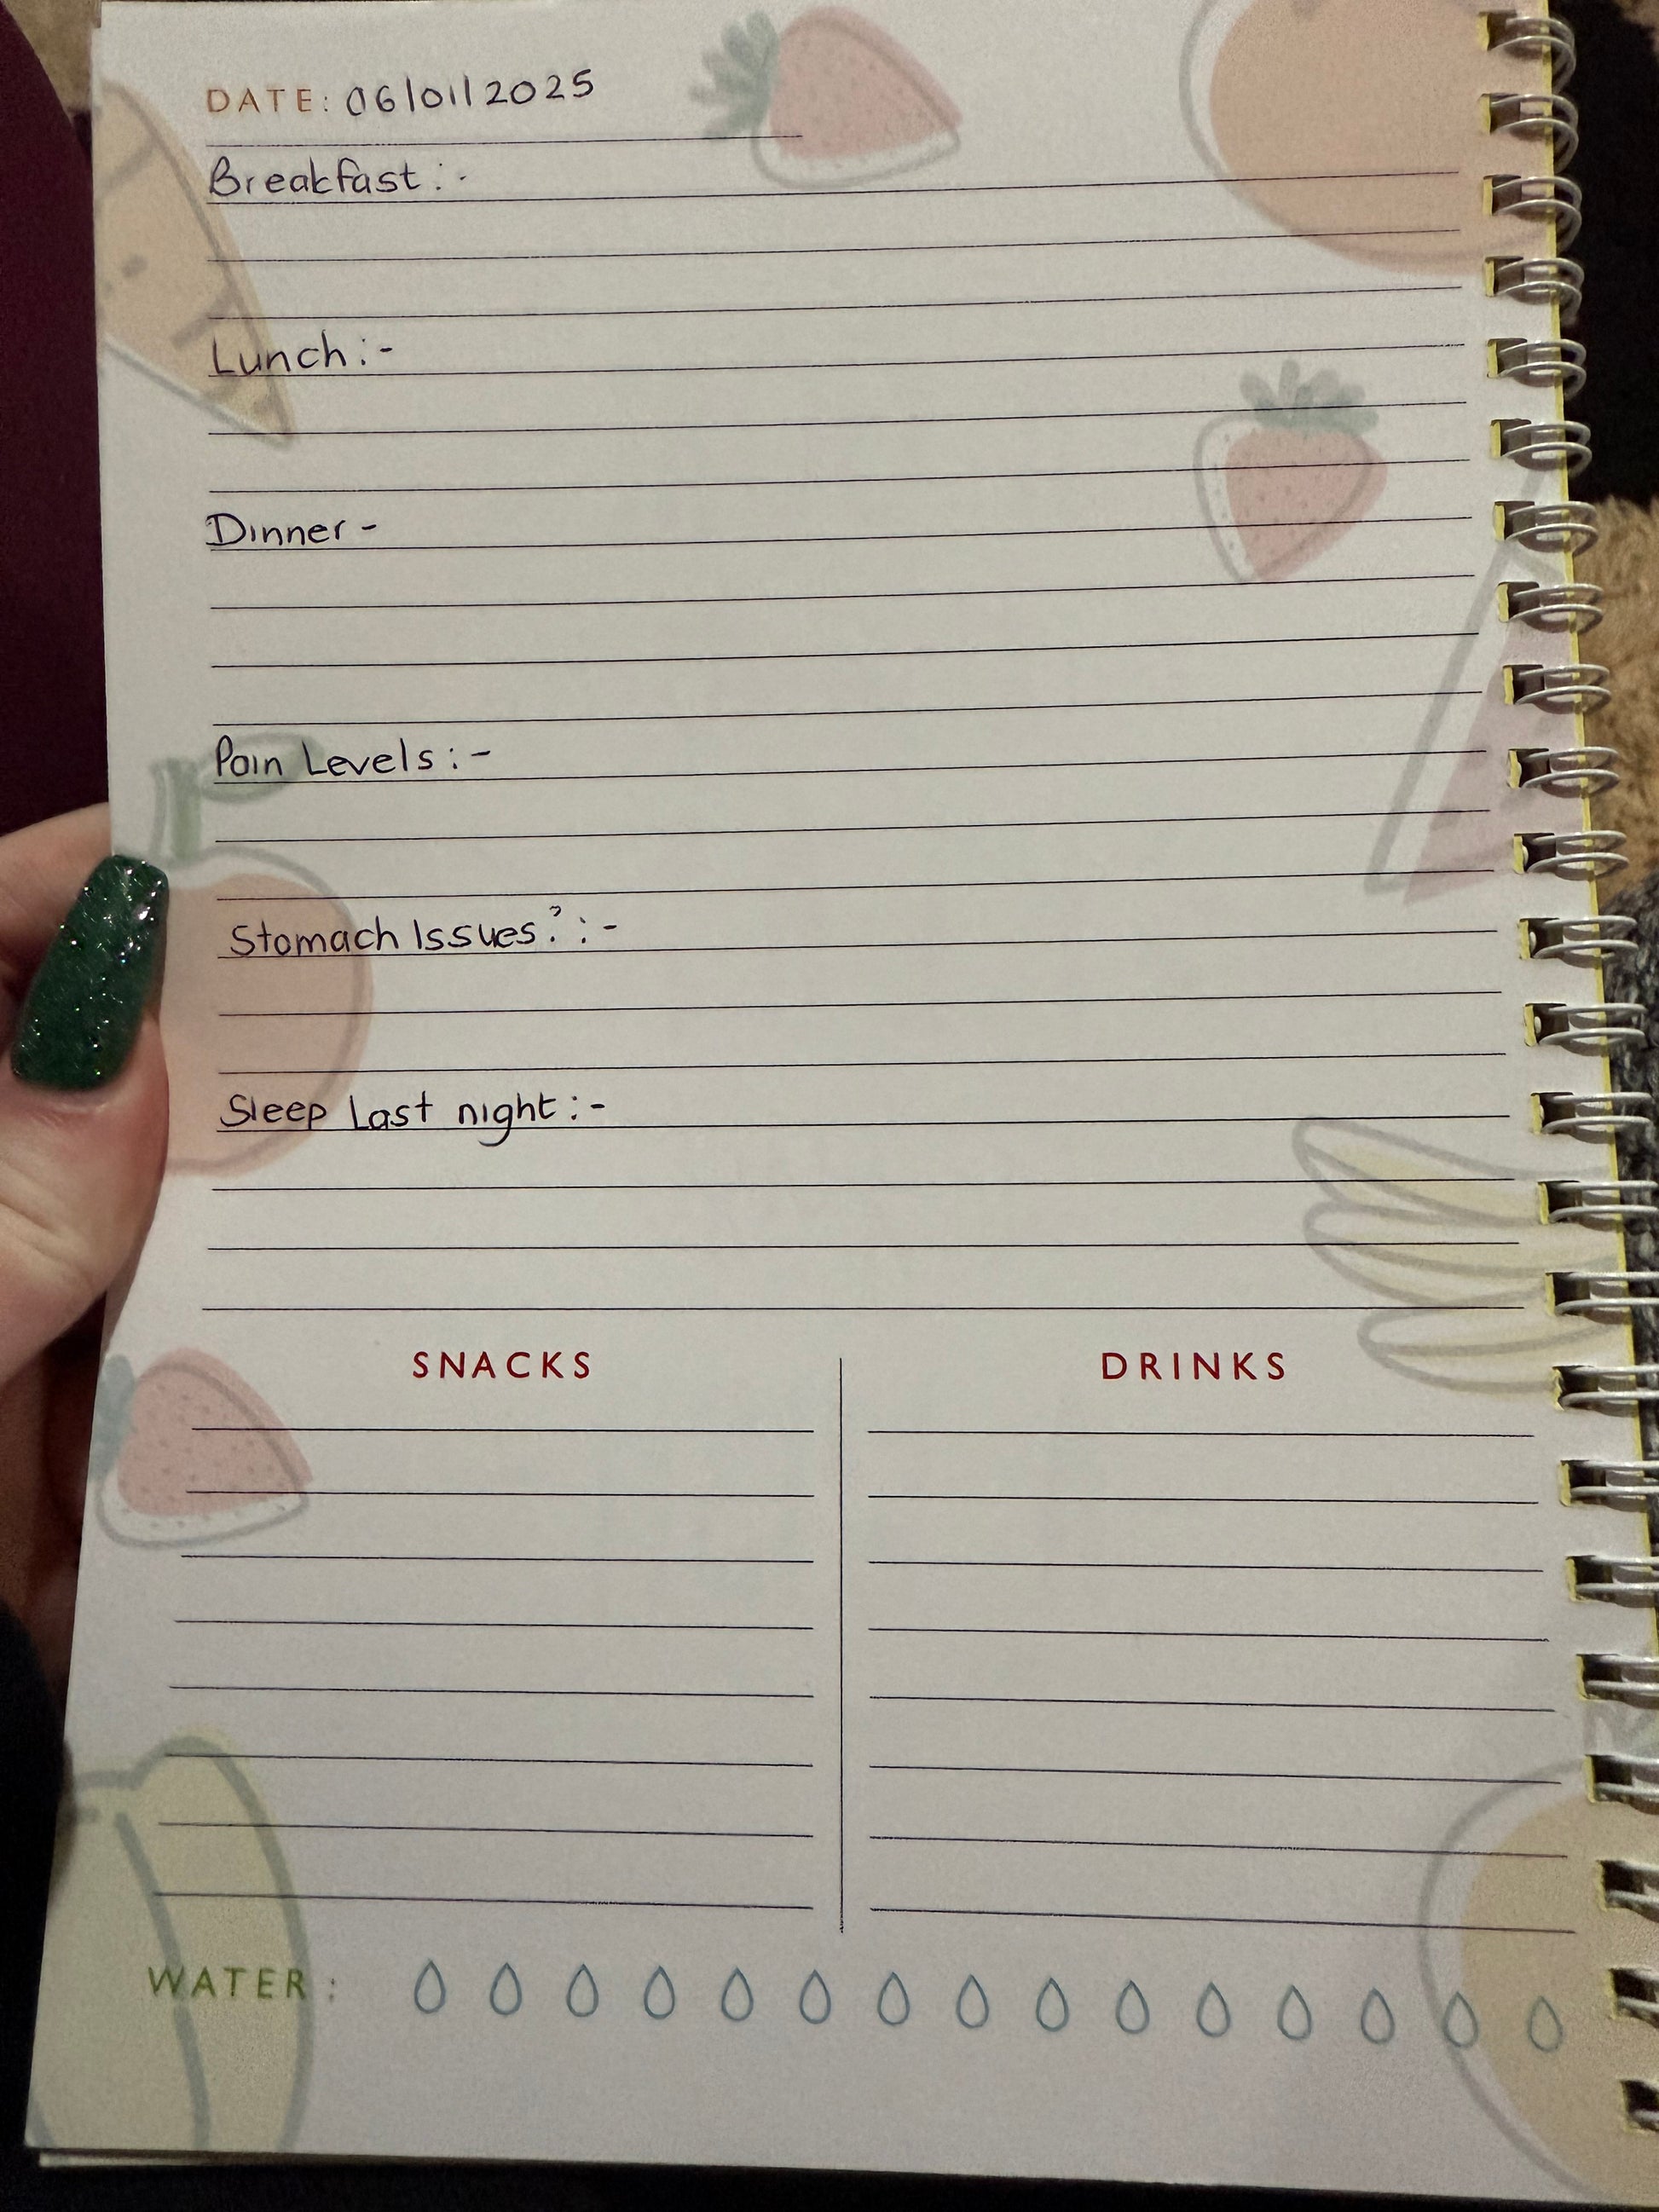 DATE: 06/01/2025
Breakfast:-
Lunch:-
Dinner-
Pain Levels:-
Stomach Issues?:-
Sleep Last night:-
SNACKS DRINKS
WATER: